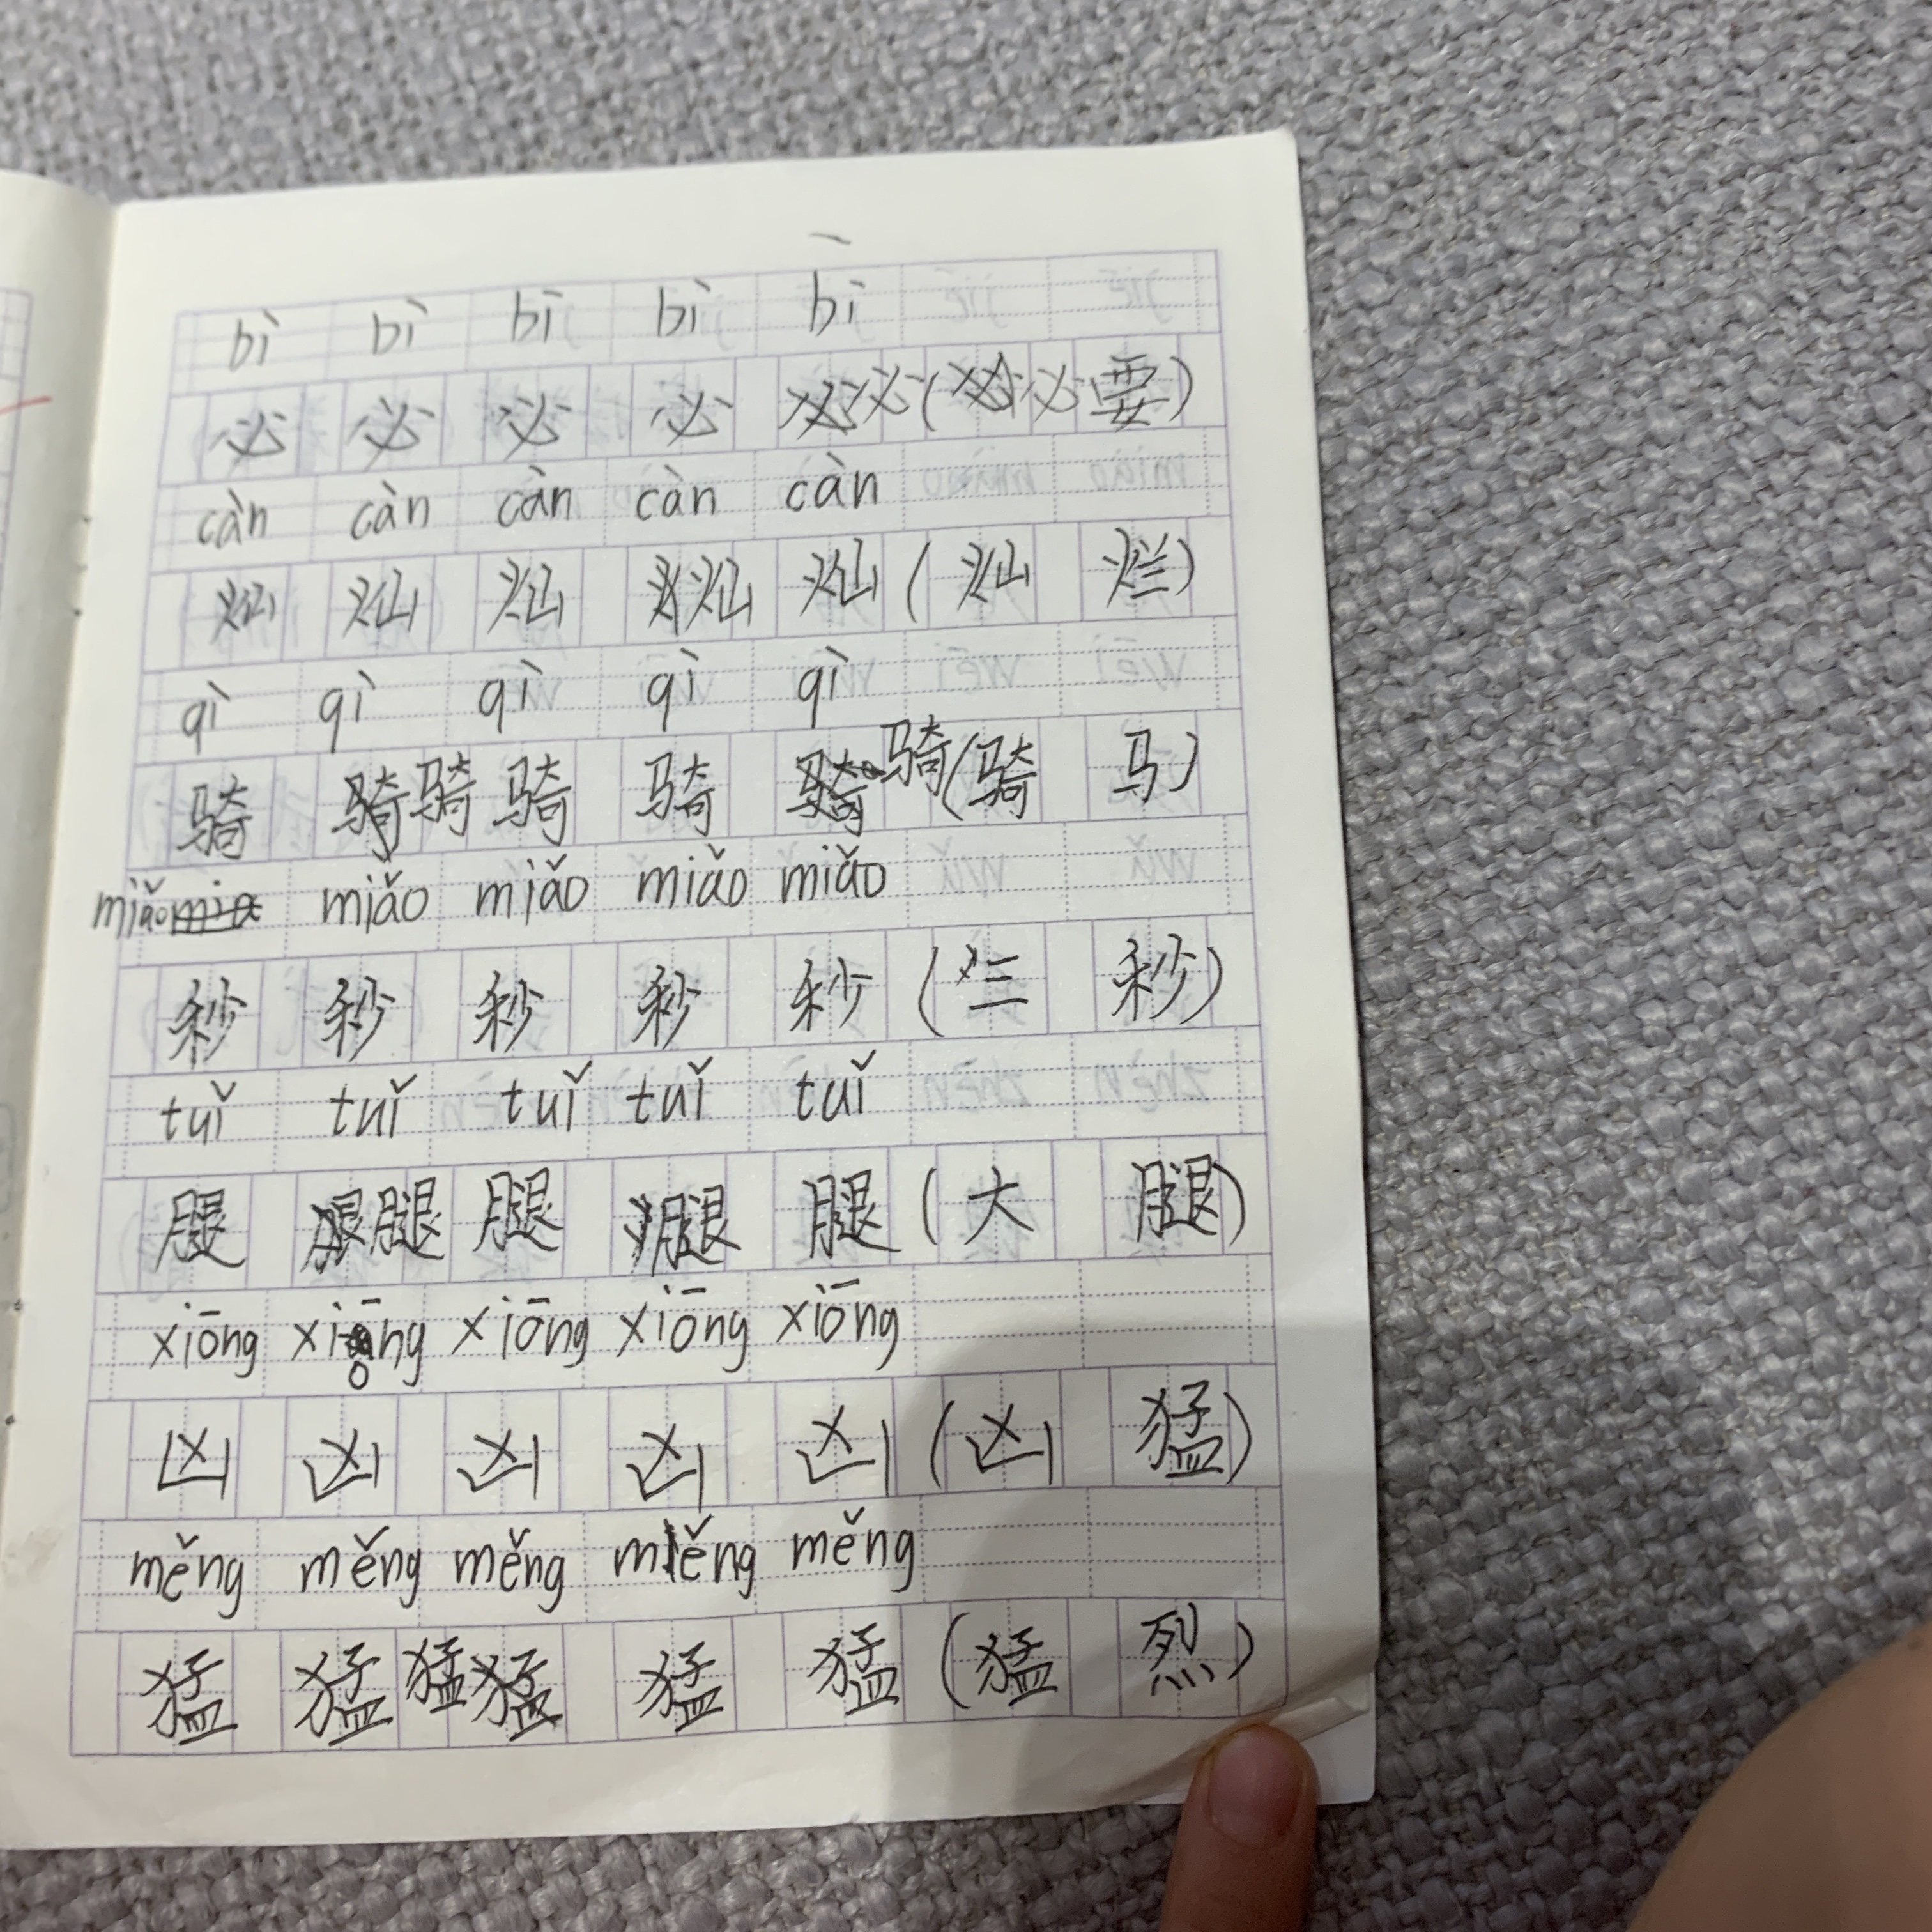 bì bì bì bì bì
必 必 必 必 必 (必要)
càn càn càn càn càn
灿 灿 灿 灿 灿 (灿烂)
qì qì qì qì qì
骑 骑 骑 骑 骑 骑 (骑马)
miǎo miǎo miǎo miǎo miǎo
秒 秒 秒 秒 秒 (三秒)
tuǐ tuǐ tuǐ tuǐ tuǐ
腿 腿 腿 腿 腿 (大腿)
xiōng xiōng xiōng xiōng xiōng
凶 凶 凶 凶 凶 (凶猛)
měng měng měng měng měng
猛 猛 猛 猛 猛 猛 (猛烈)